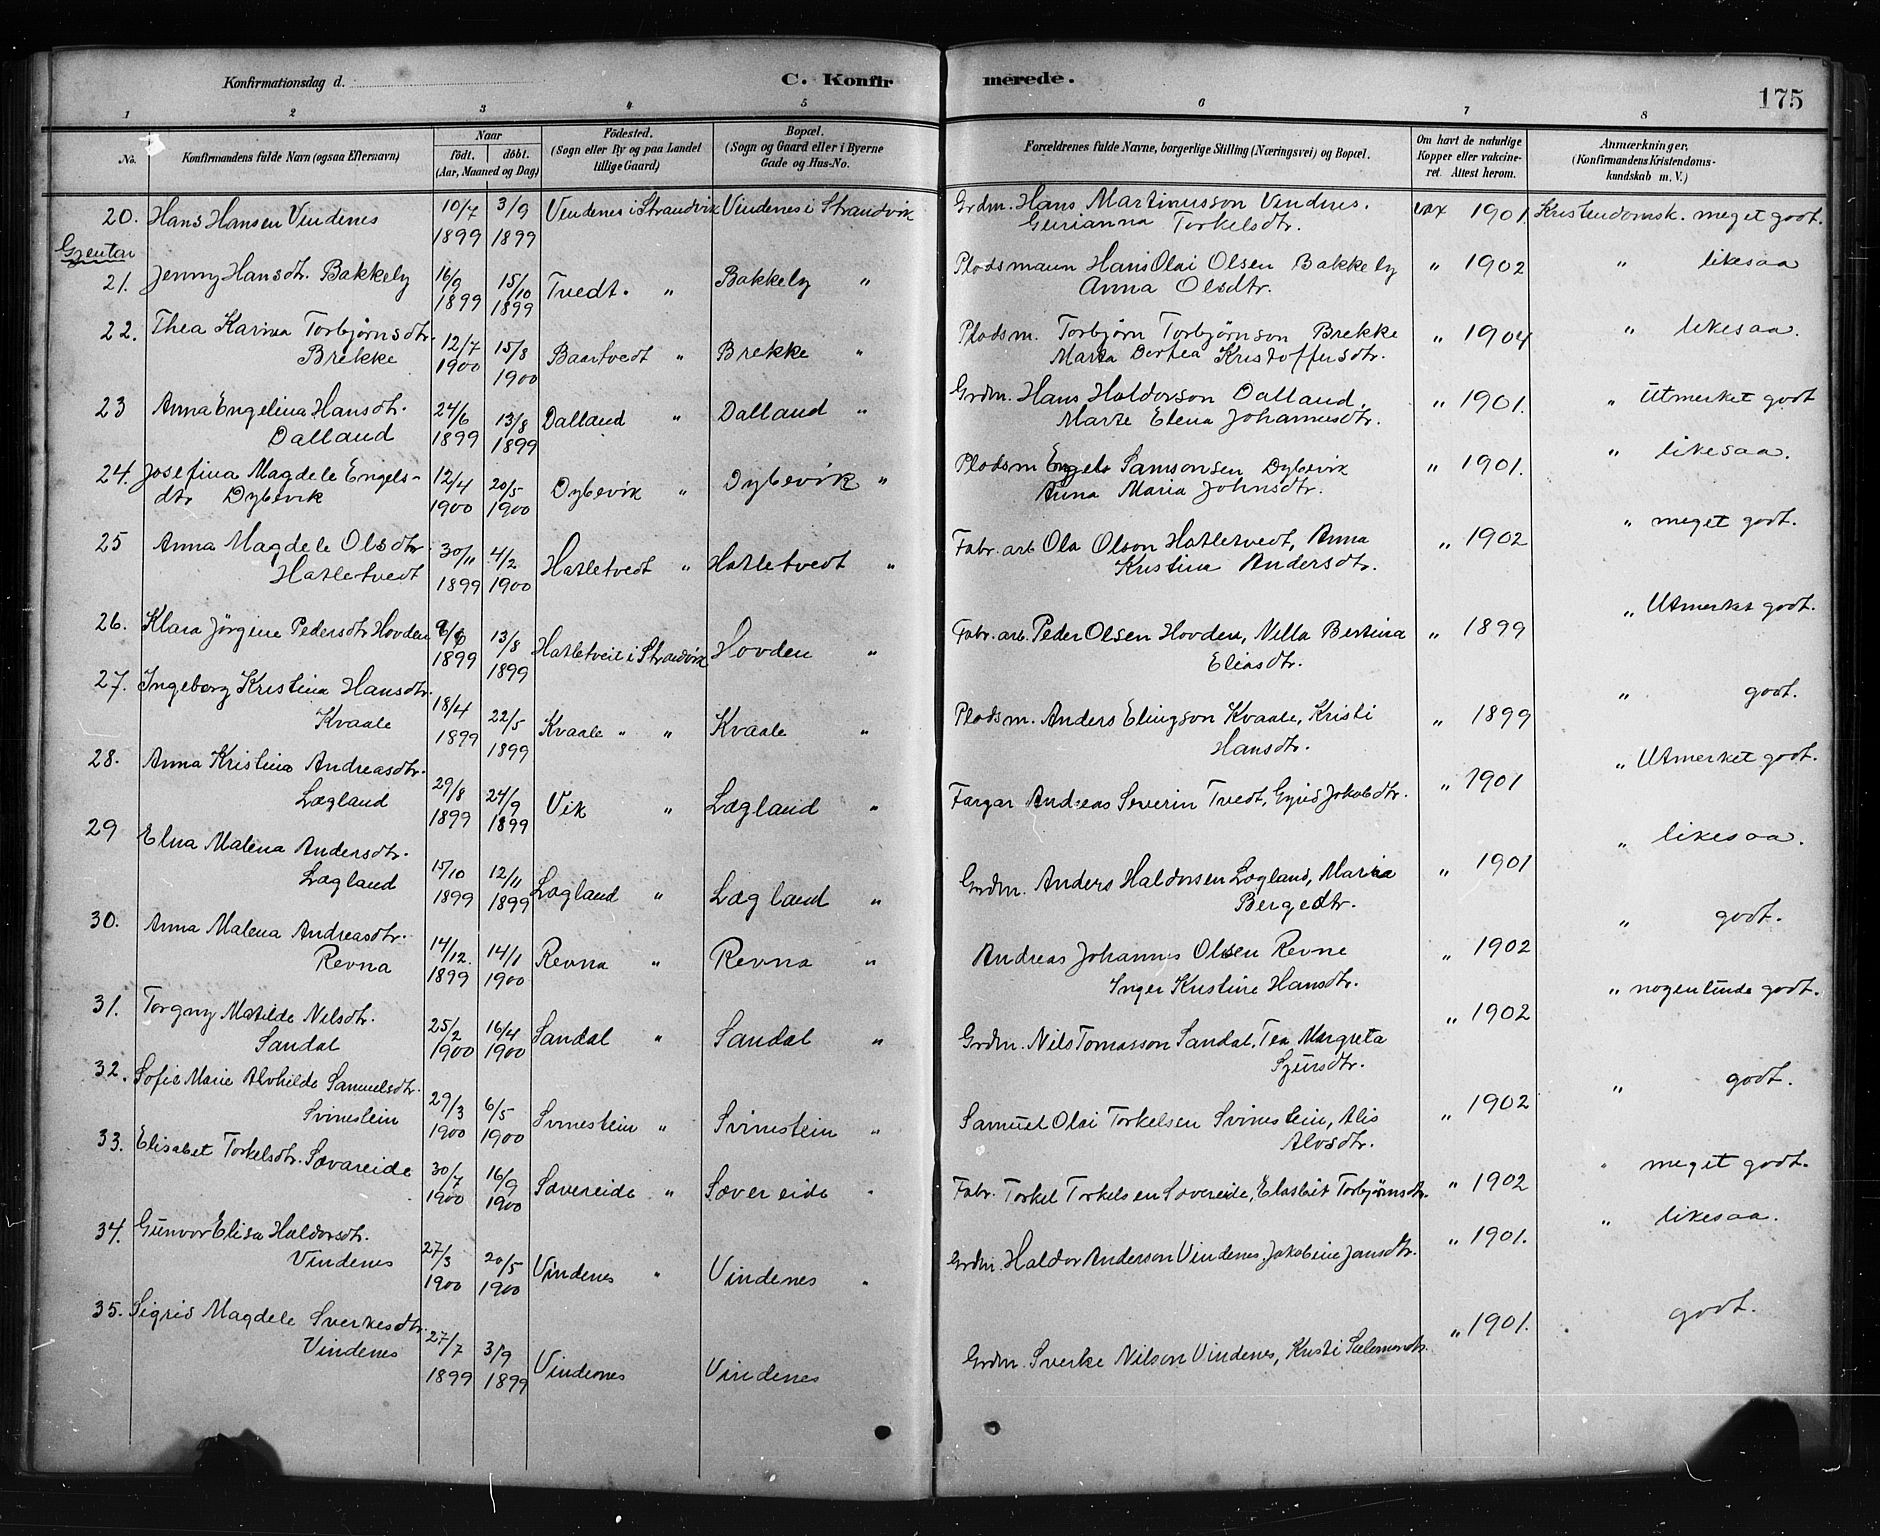 Konfirmationsdag d.
C. Konfirmerede.
175
1 2 3 4 5 6 7 8
No.
Konfirmandens fulde Navn (ogsaa Efternavn)
Naar
födt. döbt.
(Aar, Maaned og Dag)
Födested.
(Sogn eller By og paa Landet
tillige Gaard)
Bopæl.
(Sogn og Gaard eller i Byerne
Gade og Hus-No.
Forældrenes fulde Navne, borgerlige Stilling (Næringsvei) og Bopæl.
Om havt de naturlige
Kopper eller vakcine-
ret. Attest herom.
Anmærkninger.
(Konfirmandens Kristendoms-
kundskab m. V.)
20. Hans Hansen Vindenes 10/7 1899 3/9 1899 Vindenes i Strandvik Vindenes i Strandvik Grdm. Hans Martinusson Vindnes. vax 1901. Kristendomsk. meget godt.
Gurianna Torkelsdtr.
Gjentar
21. Jenny Hansdtr. Bakkely 16/9 1899 15/10 1899 Tvedt. " Bakkely " Pladsmann Hans Olai Olsen Bakkely " 1902 " likesaa
Anna Olsdtr.
22. Thea Karina Torbjørnsdtr. 12/7 1900 15/8 1900 Baartvedt " Brekke " Pladsm. Torbjørn Torbjørnson Brekke " 1904 " likesaa.
Brekke Marta Dortea Kristoffersdtr.
23 Anna Engelina Hansdtr. 24/6 1899 13/8 1899 Dalland " Dalland " Grdm. Hans Haldorson Dalland. " 1901. " Utmerket godt
Dalland Marte Elena Johannesdtr.
24. Josefina Magdele Engels- 12/4 1900 20/5 1900 Dybevik " Dybevik " Pladsm Engels Samsonsen Dybevik " 1901. " likesaa.
dtr Dybevik Anna Maria Johnsdtr.
25 Anna Magdele Olsdtr. 30/11 1899 4/2 1900 Hatletvedt " Hatletvedt " Fabr. arb Ola Olson Hatletvedt, Anna " 1902 " meget godt.
Hatletvedt Kristina Andersdtr.
26. Klara Jörgine Pedersdtr Hovden 1899 13/8 1899 Hatletveit i Strandvik Hovden " Fabr. arb. Peder Olsen Hovden, Nilla Bertina " 1899 " Utmerket godt.
Eliasdtr.
27. Ingeborg Kristina Hansdtr. 18/4 1899 22/5 1899 Kvaale " " Kvaale " Pladsm. Anders Elingson Kvaale, Kristi " 1899 " godt.
Kvaale Hansdtr.
28. Anna Kristina Andreasdtr. 29/8 1899 24/9 1899 Vik " Lægland " Fargar Andreas Severin Tvedt, Gyrid Jakobdtr. " 1901 " Utmerket godt.
Lægland
29 Elna Malena Andersdtr. 15/10 1899 12/11 1899 Lægland " Lægland " Grdm. Anders Haldorsen Lægland, Maria " 1901 " likesaa.
Lægland Bergedtr.
30. Anna Malena Andreasdtr. 14/12. 1899 14/1 1900 Revna " Revna " Andreas Johannes Olsen Revne " 1902 " godt.
Revna Inger Kristine Hansdtr.
31. Torgny Matilde Nilsdtr. 25/2 1900 16/4 1900 Sandal " Sandal " Grdm. Nils Tomasson Sandal, Tea Margreta " 1902 " nogenlunde godt.
Sandal Sjursdtr.
32. Sofie Marie Alvhilde Samuelsdtr. 29/3 1900 6/5 1900 Svinestein " Svinestein " Samuel Olai Torkelsen Svinestein, Alis " 1902 " godt.
Svinestein Alvsdtr.
33. Elisabet Torkelsdtr. Sævareide 30/7 1900 16/9 1900 Sævereide " Sævereide " Fabr. Torkel Torkelsen Sævereide, Elasbit Torbjørnsdtr. " 1902 " meget godt.
34. Gunvor Elisa Haldorsdtr. 27/3 1900 20/5 1900 Vindenes " Vindenes " Grdm. Haldor Anderson Vindenes, Jakobine Jansdtr. " 1901. " likesaa.
Vindenes
35. Sigrid Magdele Sverkesdtr. 27/7 1899 3/9 1899 Vindenes Vindenes Grdm. Sverke Nilson Vindenes, Kristi Salemonsdtr. " 1901. " godt.
Vindenes